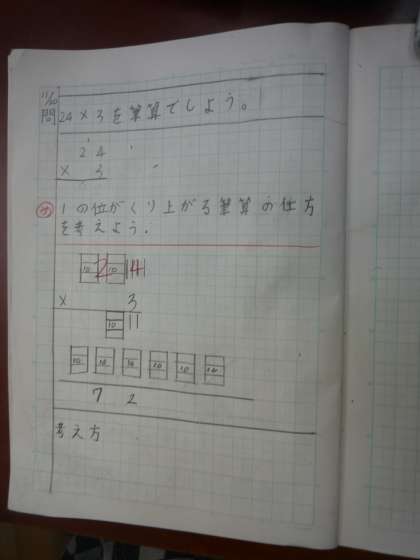 11/20
問 24×3を筆算でしよう。
24
× 3
め 1の位がくり上がる筆算の仕方
を考えよう。
10 2 10 4
× 3
10 11
10 10 10 10 10 10
7 2
考え方